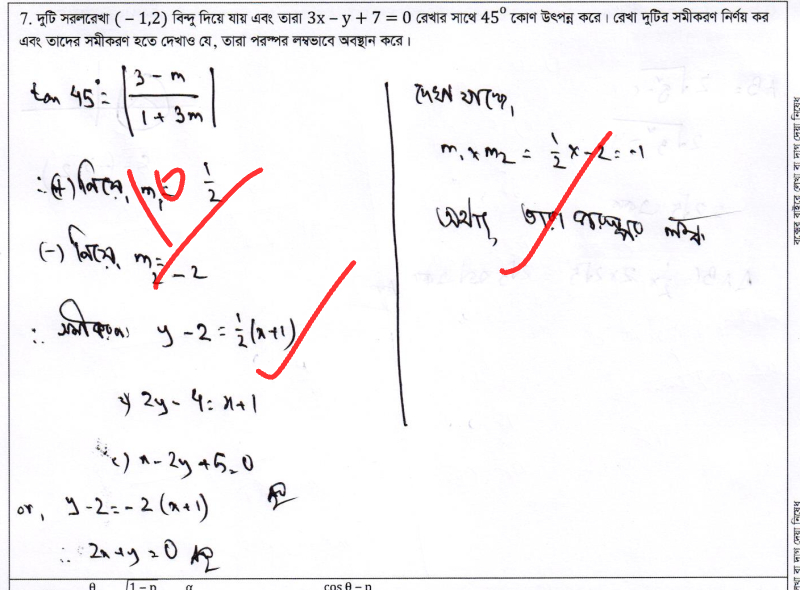 7. দুটি সরলরেখা (−1,2) বিন্দু দিয়ে যায় এবং তারা 3x − y + 7 = 0 রেখার সাথে 45° কোণ উৎপন্ন করে। রেখা দুটির সমীকরণ নির্ণয় কর
এবং তাদের সমীকরণ হতে দেখাও যে, তারা পরস্পর লম্বভাবে অবস্থান করে।
tan 45° = |(3 − m)/(1 + 3m)|
∴ (+) নিয়ে, m₁ = 1/2
(−) নিয়ে, m₂ = −2
∴ সমীকরণ y − 2 = 1/2 (x+1)
2y − 4 = x+1
x − 2y + 5 = 0
or, y − 2 = −2 (x+1)
∴ 2x + y = 0
দেখা যাচ্ছে,
m₁ × m₂ = 1/2 × −2 = −1
অর্থাৎ, তারা পরস্পর লম্ব
θ √1−n α cos θ − n